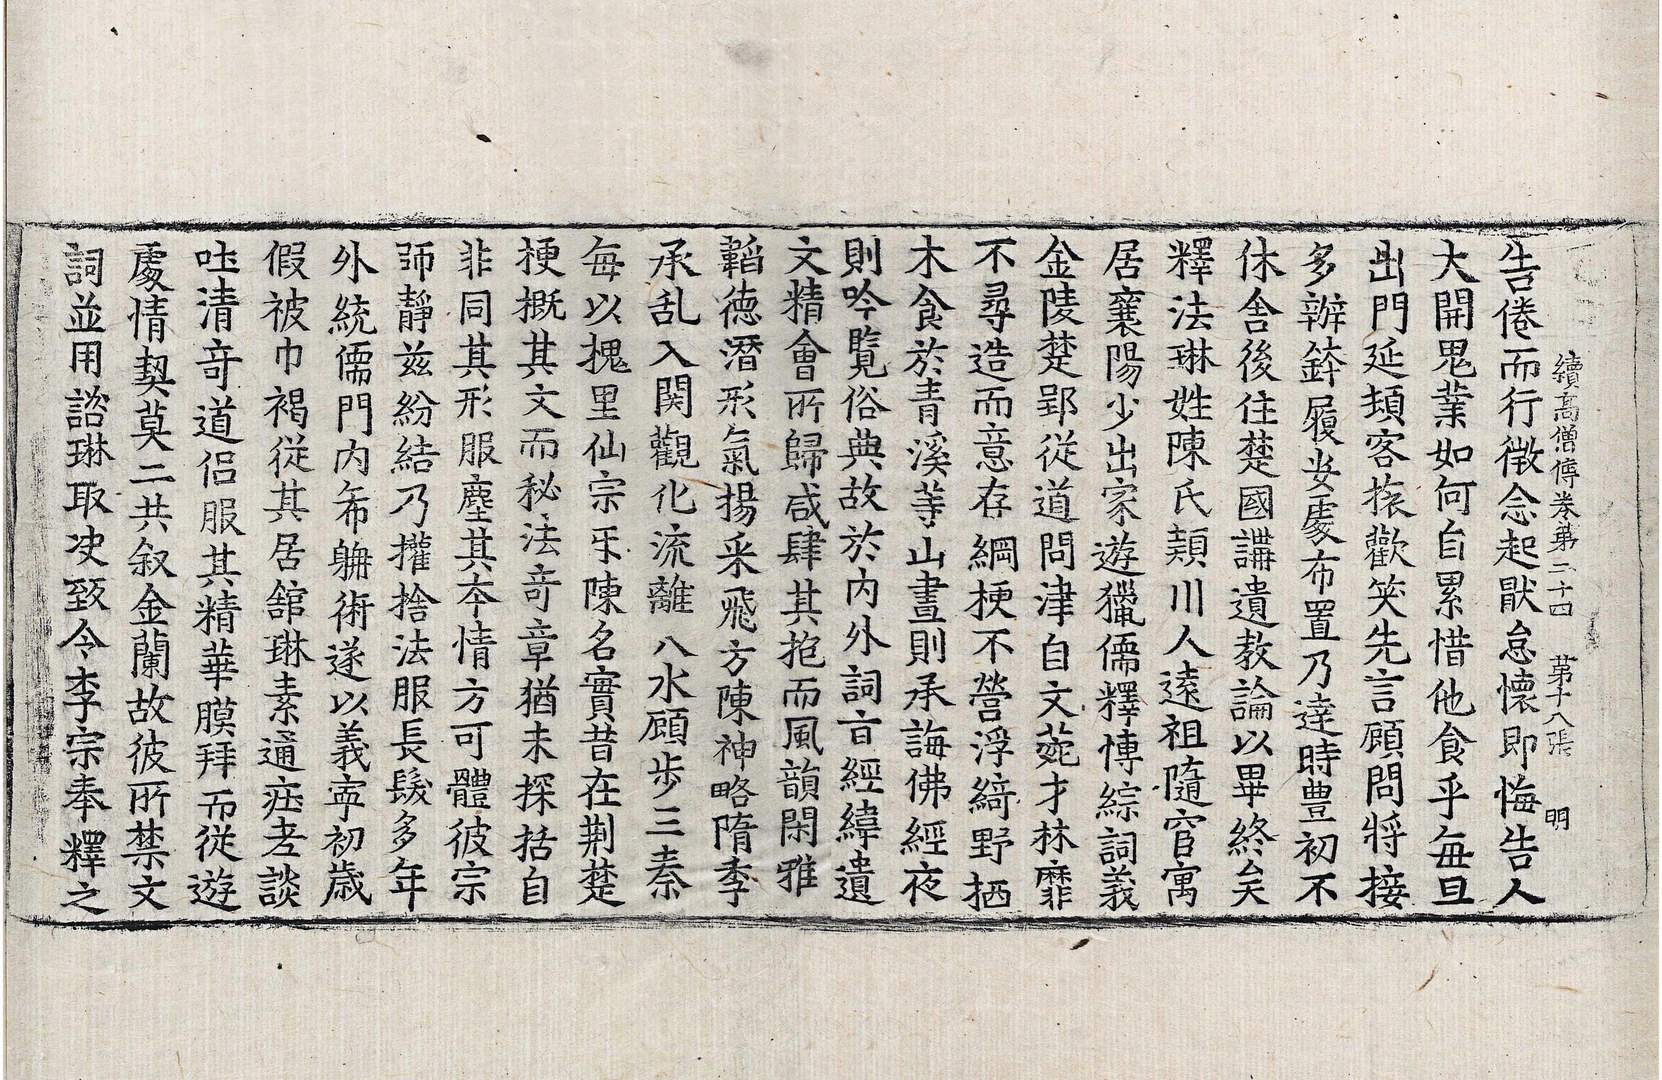 續高僧傳卷第二十四 第十八張 明
告倦而行徵念起猒怠懷即悔告人
大開鬼業如何自累惜他食乎每旦
出門延頸客旅歡笑先言顧問將接
多辦鉢履安處布置乃達時豊初不
休舍後住楚國講遺教論以畢終矣
釋法琳姓陳氏潁川人遠祖隨官寓
居襄陽少出家遊獵儒釋博綜詞義
金陵楚郢從道問津自文苑才林靡
不尋造而意存綱梗不營浮綺野栖
木食於青溪等山晝則承誨佛經夜
則吟覽俗典故於内外詞旨經緯遺
文精會所歸咸肆其抱而風韻閑雅
韜德潛形氣揚采飛方陳神略隋季
承乱入関觀化流離八水顧步三秦
每以槐里仙宗互陳名實昔在荆楚
梗概其文而秘法竒章猶未探括自
非同其形服塵其本情方可體彼宗
師靜兹紛結乃權捨法服長髮多年
外統儒門内希聃術遂以義寧初歲
假被巾褐從其居舘琳素通莊老談
吐清竒道侣服其精華膜拜而從遊
處情契莫二共叙金蘭故彼所禁文
詞並用諮琳取决致令李宗奉釋之